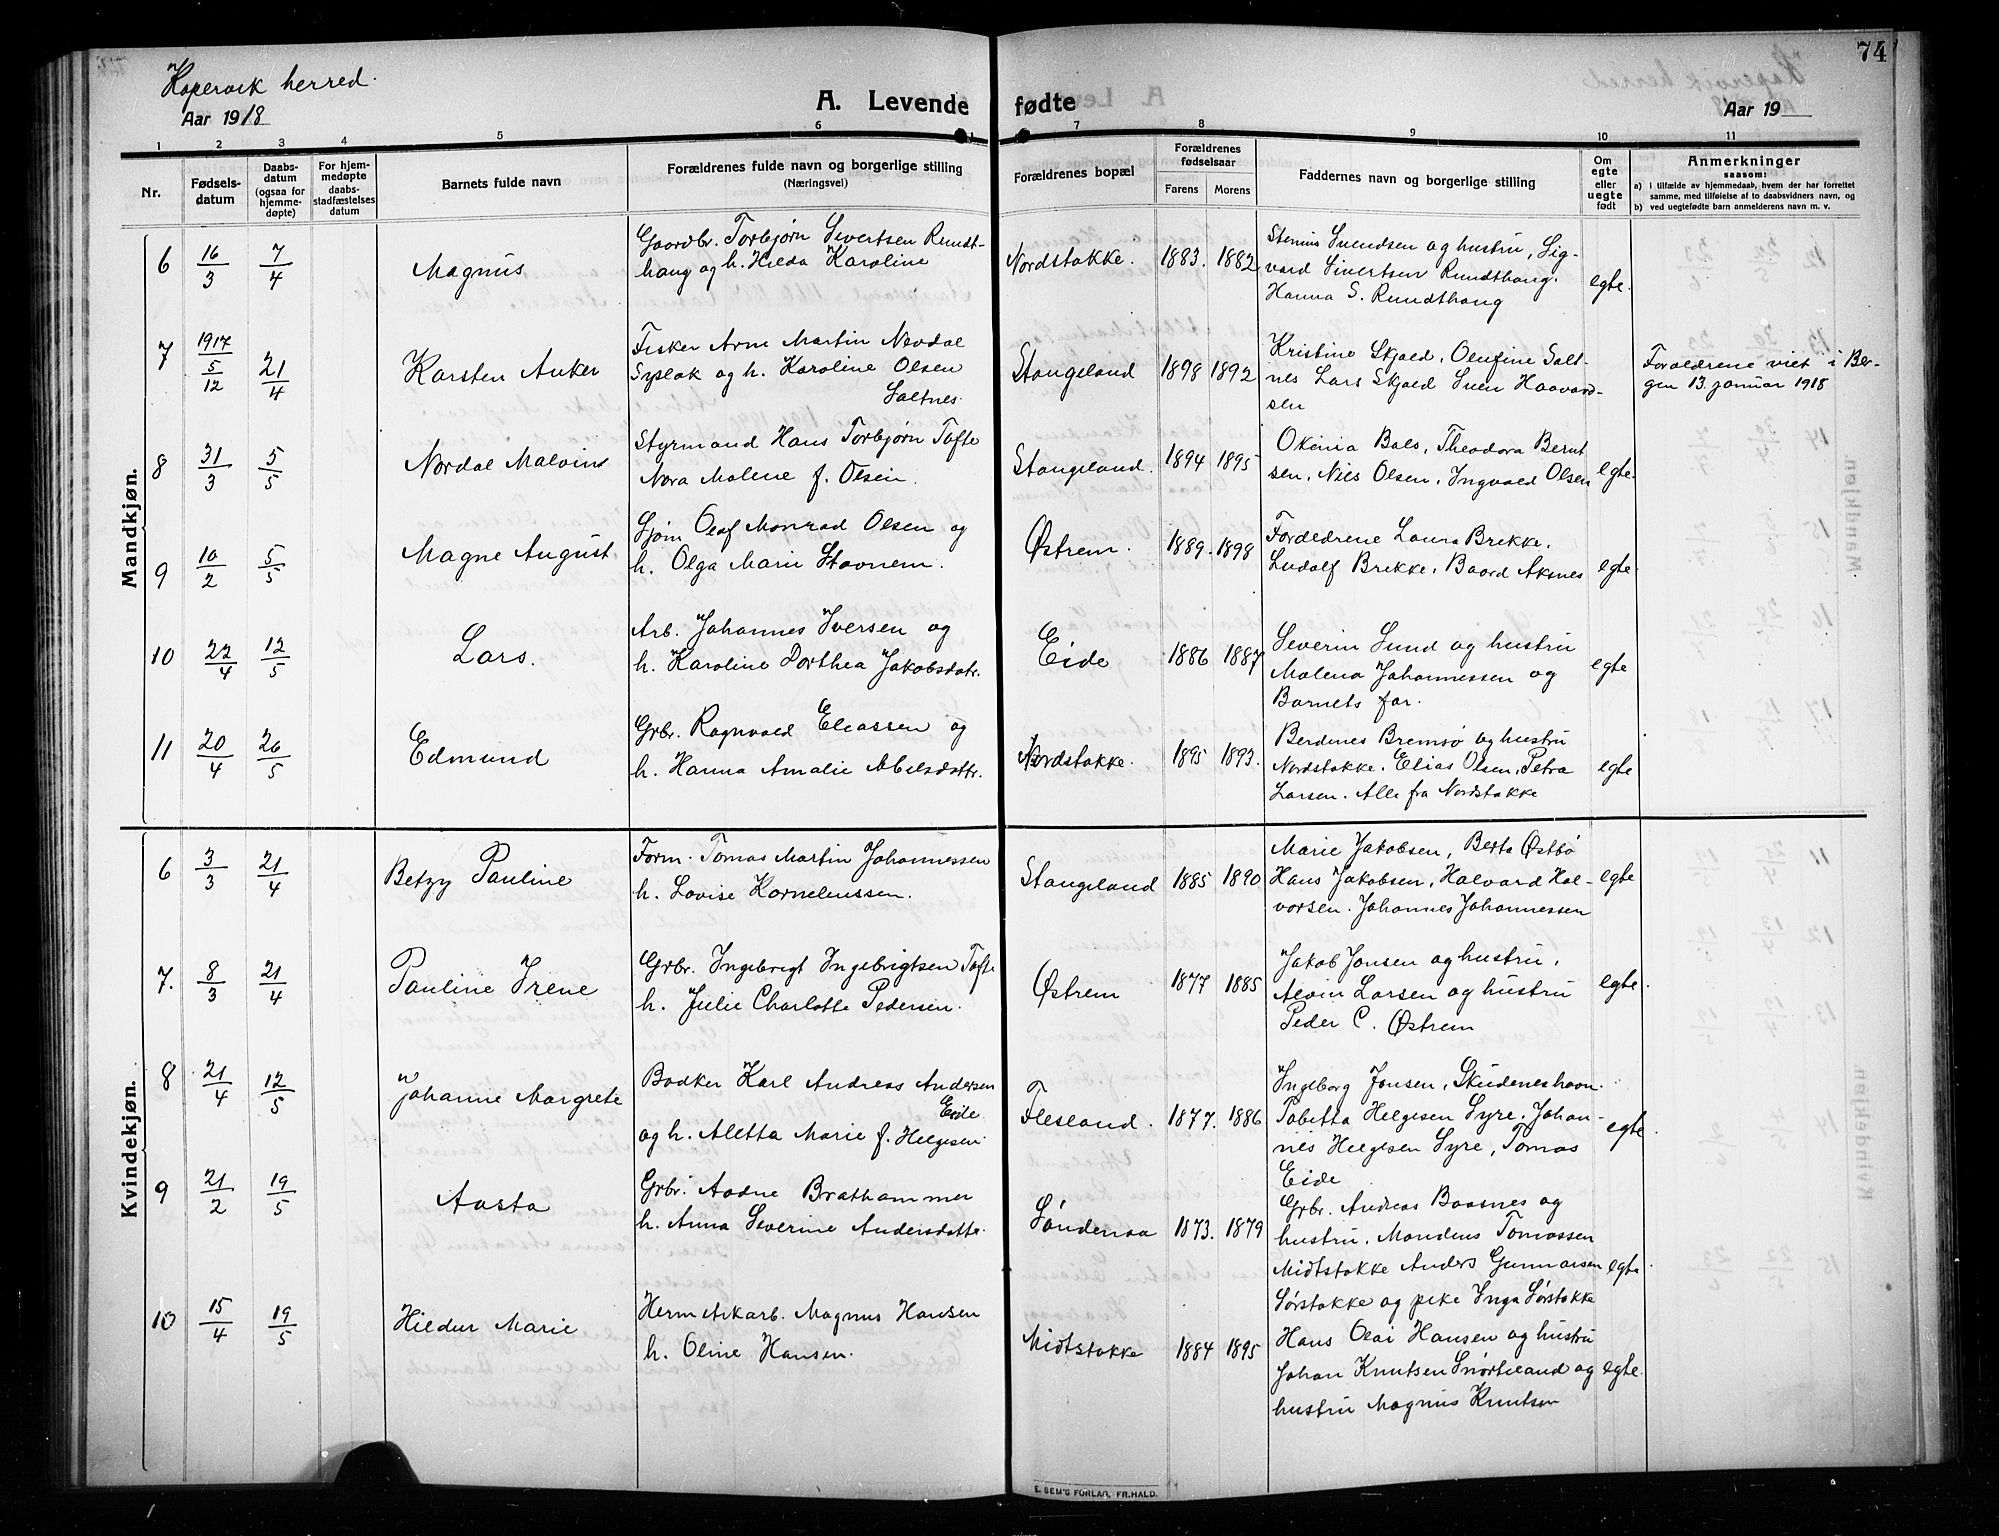 Kopervik herred.
Aar 1918
A. Levende fødte
Aar 19
74
1 2 3 4 5 6 7 8 9 10 11
Nr.
Fødsels-
datum
Daabs-
datum
(ogsaa for
hjemme-
døpte)
For hjem-
medøpte
daabs-
stadfæstelses
datum
Barnets fulde navn
Forældrenes fulde navn og borgerlige stilling
(Næringsvei)
Forældrenes bopæl
Forældrenes
fødselsaar
Farens Morens
Faddernes navn og borgerlige stilling
Om
egte
eller
uegte
født
Anmerkninger
saasom:
a) i tilfælde av hjemmedaab, hvem der har forrettet
samme, med tilføielse af to daabsvidners navn, og
b) ved uegtefødte barn anmelderens navn m. v.
Mandkjøn.
6 16/3 7/4 Magnus
Gaardbr. Torbjørn Sivertsen Rundt-
haug og h. Hilda Karoline
Nordstokke. 1883. 1882
Stenius Svendsen og hustru, Sig-
vard Sivertsen Rundthaug.
Hanna S. Rundthaug
egte.
7 1917 5/12 21/4 Karsten Anker
Fisker Arne Martin Nevdal
Syslak og h. Karoline Olsen
Saltnes.
Stangeland 1898 1892
Kristine Skjold, Olufine Salt-
nes Lars Skjold Sven Haavard-
sen
Forældrene viet i Ber-
gen 13. januar 1918
8 31/3 5/5 Nordal Malvin
Styrmand Hans Torbjørn Tofte
Nora Malene f. Olsen.
Stangeland. 1894 1895
Okenia Bals, Theodora Bernt
sen, Nils Olsen, Ingvald Olsen
egte.
9 10/2 5/5 Magne August
Sjøm Olaf Monrad Olsen og
h. Olga Marie Stavnem.
Østrem. 1889. 1898
Forældrene Laura Brekke,
Ludolf Brekke, Baard Aksnes
egte.
10 22/4 12/5 Lars.
Arb. Johannes Iversen og
h. Karoline Dorthea Jakobsdatr.
Eide 1886 1887
Severin Lund og hustru
Malena Johannessen og
Barnets far.
egte
11 20/4 26/5 Edmund
Grbr. Ragnvald Eliassen og
h. Hanna Amalie Abelsdattr.
Nordstokke. 1895 1893.
Berdenes Bremsø og hustru
Nordstokke. Elias Olsen, Petra
Larsen. Alle fra Nordstokke
egte
Kvindekjøn.
6 3/3 21/4 Betzy Pauline
Form. Tomas Martin Johannessen
h. Lovise Korneliussen.
Stangeland 1885 1890
Marie Jakobsen, Berta Østbø
Hans Jakobsen, Halvard Hal-
vorsen. Johannes Johannessen
egte
7. 8/3 21/4 Pauline Irene
Grbr. Ingebrigt Ingebrigtsen Tofte
h. Julie Charlotte Pedersen.
Østrem 1877 1885
Jakob Jonsen og hustru,
Alvin Larsen og hustru
Peder C. Østrem
egte.
8 21/4 12/5 Johanne Margrete
Bødker Karl Andreas Andersen
Eide
og h. Aletta Marie f. Helgesen.
Flesland. 1877. 1886
Ingeborg Jonsen, Skudeneshavn.
Tabetta Helgesen Syre. Johan-
nes Helgesen Syre, Tomas
Eide
egte.
9 21/2 19/5 Aasta
Grbr. Aadne Brathammer
h. Anna Severine Andersdatte.
Søndenaa 1873. 1879
Grbr. Andreas Baasnes og
hustru. Mandens Tomassen
Midtstokke Anders Gunnarsen
Sørstokke og pike Inga Sørstokke
egte
10 15/4 19/5 Hildur Marie
Hermetikarb. Magnus Hansen
h. Oline Hansen.
Midtstokke 1884 1895
Hans Olai Hansen og hustru
Johan Knutsen Snørteland og
hustru Magnus Knutsen
egte.
E. SEM'S FORLAG, FR.HALD.